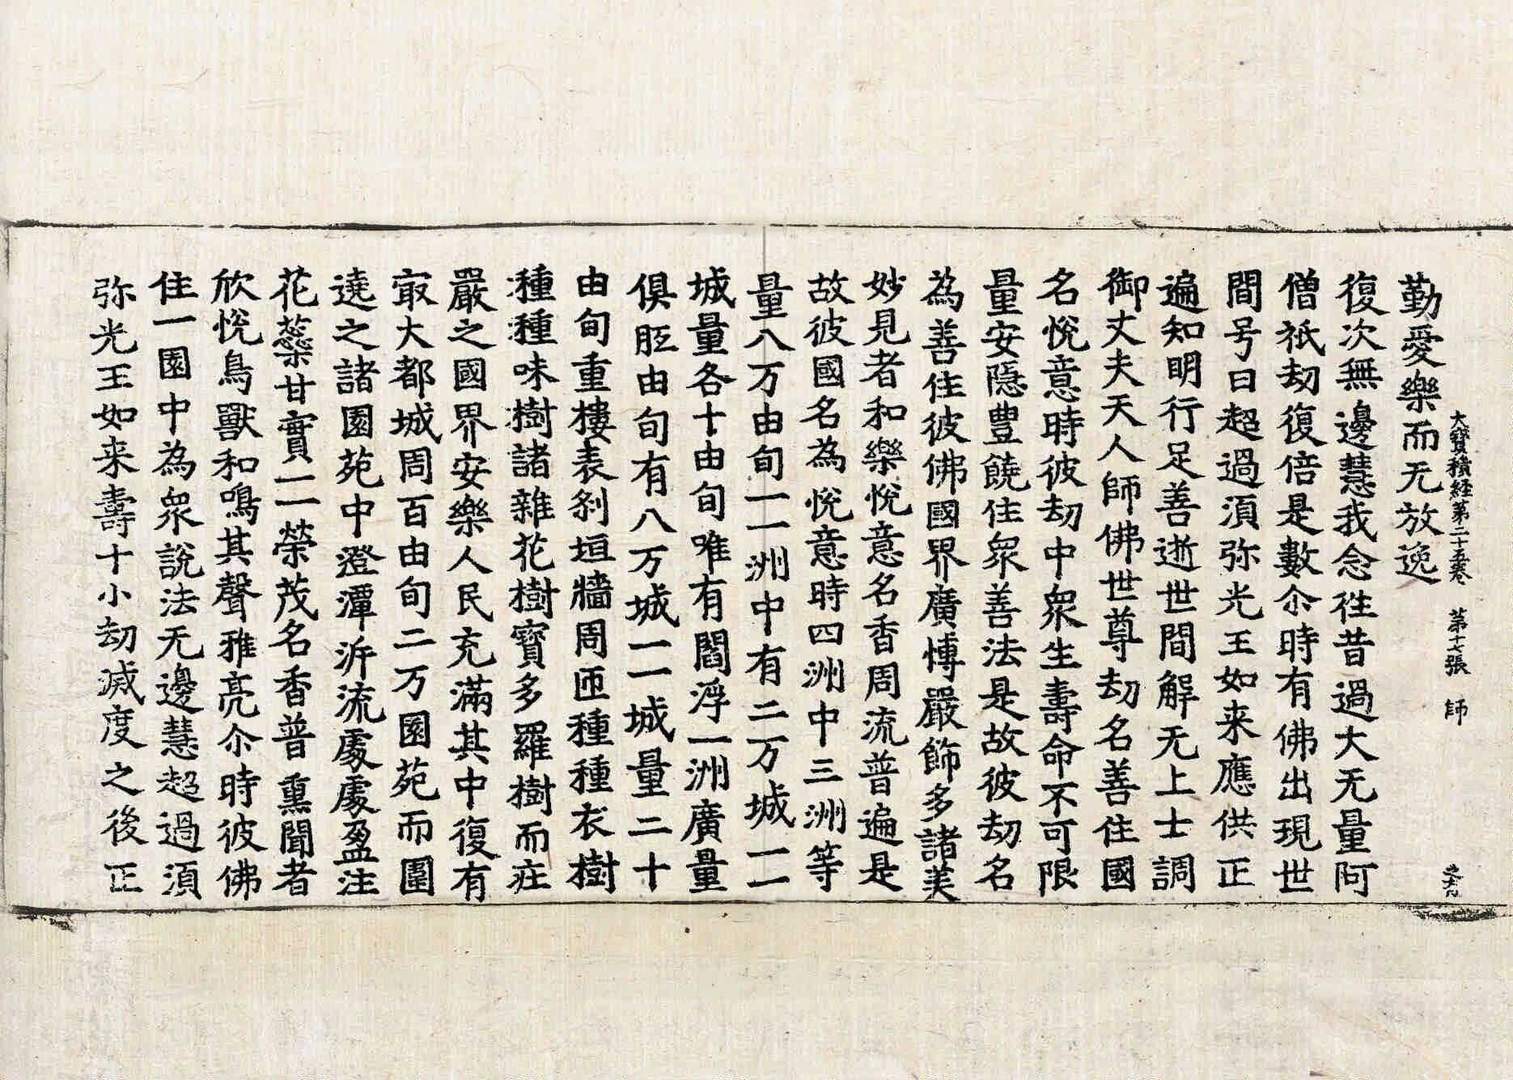 大寶積経第二十五卷 第十七張 師
勤愛樂而无放逸
復次無邊慧我念往昔過大无量阿
僧祇劫復倍是數尒時有佛出現世
間号曰超過湏弥光王如来應供正
遍知明行足善逝世間解无上士調
御丈夫天人師佛世尊劫名善住國
名悅意時彼劫中衆生壽命不可限
量安隱豊饒住衆善法是故彼劫名
為善住彼佛國界廣博嚴飾多諸美
妙見者和樂悅意名香周流普遍是
故彼國名為悅意時四洲中三洲等
量八万由旬一一洲中有二万城一一
城量各十由旬唯有閻浮一洲廣量
俱胝由旬有八万城一一城量二十
由旬重樓表剎垣牆周匝種種衣樹
種種味樹諸雜花樹寶多羅樹而莊
嚴之國界安樂人民充滿其中復有
㝡大都城周百由旬二万園苑而圍
遶之諸園苑中澄潭泝流處處盈注
花蘂甘實一一榮茂名香普熏聞者
欣悅鳥獸和鳴其聲雅亮尒時彼佛
住一園中為衆說法无邊慧超過湏
弥光王如来壽十小劫滅度之後正